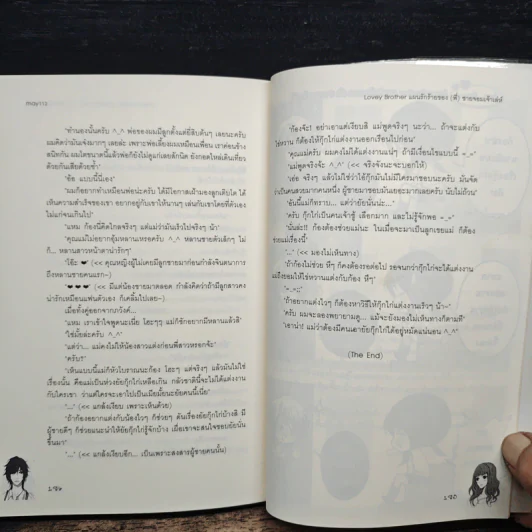 may112
"ทำนองนั้นครับ ^_^ พ่อของผมมีลูกตั้งแต่ยี่สิบต้นๆ เลยนะครับ
ผมคิดว่ามันเจ๋งมากๆ เลยล่ะ เพราะพ่อเลี้ยงผมเหมือนเพื่อน เราค่อนข้าง
สนิทกัน ผมโตขนาดนี้แล้วพ่อก็ยังไม่ดูแก่เลยสักนิด ยังกอดไหล่เดินเที่ยว
ด้วยกันสีดวยซ้ำ"
"อ้อ แบบนี้นี่เอง"
"ผมก็อยากทำเหมือนพ่อน่ะครับ ได้มีโอกาสเฝ้ามองลูกเติบโต ได้
เห็นความสำเร็จของเขา อยากอยู่กับเขาให้นานๆ เล่นกับเขาโดยที่ตัวเอง
ไม่แก่จนเกินไป"
"แหม ก้องนี่คิดไกลจริงๆ แต่แม่ว่ามันเร็วไปจริงๆ น้า"
"คุณแม่ไม่อยากอุ้มหลานเหรอครับ ^_^ หลานชายตัวเล็กๆ ไม่
ก็... หลานสาวหน้าตาน่ารักๆ"
"โอ๊ะ ❤" (<< คุณหญิงผู้ไม่เคยมีลูกชายมาก่อนกำลังจินตนาการ
ถึงหลานชายคนแรก~)
"❤❤❤" (<< มีแต่น้องชายมาตลอด กำลังคิดว่าถ้ามีลูกสาวคง
น่ารักเหมือนแฟนตัวเอง ก็เคลิ้มไปเลย~)
เมื่อทั้งคู่ออกจากภวังค์...
"แหม เราเข้าใจพูดนะเนี่ย โฮะๆๆ แม่ก็ชักอยากมีหลานแล้วสิ"
"ใช่มั้ยล่ะครับ ^_^"
"แต่ว่า... แม่คงไม่ให้น้องสาวแต่งก่อนพี่สาวหรอกจ้ะ"
"ครับ?"
"เห็นแบบนี้แม่ก็หัวโบราณนะก้อง โฮะๆ แต่จริงๆ แล้วมันไม่ใช่
เรื่องนั้น คือแม่เป็นห่วงยัยกุ๊กไก่เหลือเกิน กลัวชาตินี้จะไม่ได้แต่งงาน
กับใครเขา ว่าแต่ใครจะเอาไปเป็นเมียมั้ยนะยัยคนนี้เนี่ย"
"..." (<< แกล้งเงียบ เพราะเห็นด้วย)
"ถ้าก้องอยากแต่งกับน้องไวๆ ก็ช่วยๆ ดันเรื่องยัยกุ๊กไก่บ้างสิ มี
ผู้ชายดีๆ ก็ช่วยแนะนำให้ยัยกุ๊กไก่รู้จักบ้าง เผื่อเขาจะสนใจชอบยัยนั่น
ขึ้นมา"
"..." (<< แกล้งเงียบอีก... เป็นเพราะสงสารผู้ชายคนนั้น)
Lovey Brother แผนรักร้ายของ (พี่) ชายจอมเจ้าเล่ห์
"ก้องจ๊ะ! อย่าเอาแต่เงียบสิ แม่พูดจริงๆ นะว่า... ถ้าจะแต่งกับ
ไข่หวาน ก็ต้องให้กุ๊กไก่แต่งงานออกเรือนไปก่อน"
"คุณแม่ครับ ผมคงไม่ได้แต่งงานแน่ๆ ถ้ามีเงื่อนไขแบบนี้ =_="
"แม่พูดจริงจ้ะ ^_^" (<< จริงจังนะจะบอกให้)
"เฮ่อ จริงๆ แล้วไม่ใช่ว่าไอ้กุ๊กมันไม่มีใครมาชอบนะครับ มันจัด
ว่าเป็นคนสวยมากคนหนึ่ง ผู้ชายมาชอบมันเยอะมากเลยครับ นับไม่ถ้วน"
"อันนี้แม่ก็ทราบ... แต่ว่ายัยนั่นน่ะ..."
"ครับ กุ๊กไก่เป็นคนเจ้าชู้ เลือกมาก และไม่รู้จักพอ =_="
"นั่นล่ะ!! ก้องต้องช่วยแม่นะ ในเมื่อจะมาเป็นลูกเขยแม่ ก็ต้อง
ช่วยแม่เรื่องนี้"
"..." (<< มองไม่เห็นทาง)
"ถ้าก้องไม่ช่วย หึๆ ก็คงต้องรอต่อไป รอจนกว่ากุ๊กไก่จะได้แต่งงาน
แม่ถึงยอมให้ไข่หวานแต่งกับก้อง หึๆ"
"=_=;;"
"ถ้าอยากแต่งไวๆ ก็ต้องหาวิธีให้กุ๊กไก่แต่งงานเร็วๆ น้า~"
"ครับ ผมจะลองพยายามดู... แม้จะยังมองไม่เห็นทางก็ตามที"
"เอาน่า! แม่ว่าต้องมีคนเอายัยกุ๊กไก่ได้อยู่หมัดแน่นอน ^_^"
(The End)